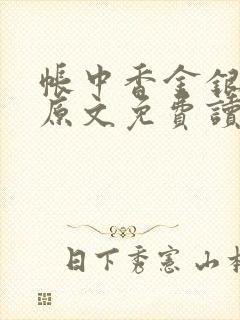 帳中香金銀
原文免費讀
日下秀憲 山本